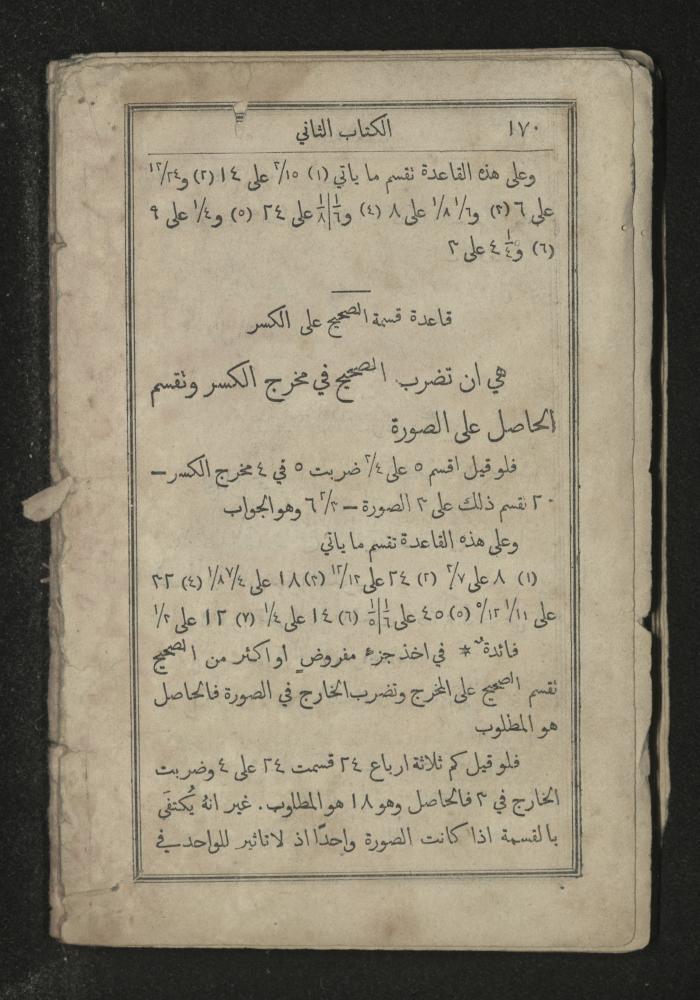 ١٧٠ الكتاب الثاني
وعلى هذه القاعدة نقسم ما ياتي (١) ٢/١٥ على ١٤ (٢) و١٢/٢٤
على ٦ (٣) و١/٦ ١/٨ على ٨ (٤) و١/٦|١/٨ على ٢٤ (٥) و١/٤ على ٩
(٦) و١/٤ ٤ على ٣
قاعدة قسمة الصحيح على الكسر
هي ان تضرب الصحيح في مخرج الكسر وتقسم
الحاصل على الصورة
فلو قيل اقسم ٥ على ٣/٤ ضربت ٥ في ٤ مخرج الكسر —
٢٠ نقسم ذلك على ٣ الصورة — ٢/٣ ٦ وهو الجواب
وعلى هذه القاعدة نقسم ما ياتي
(١) ٨ على ٢/٧ (٢) ٢٤ على ١٢/١٣ (٣) ١٨ على ٧/٨ ١/٤ (٤) ٣٢
على ١/١١ ٥/١٢ (٥) ٤٥ على ١/٦|١/٥ (٦) ١٤ على ١/٤ (٧) ١٢ على ١/٢
فائدة * في اخذ جزء مفروض او اكثر من الصحيح
نقسم الصحيح على المخرج وتضرب الخارج في الصورة فالحاصل
هو المطلوب
فلو قيل كم ثلاثة ارباع ٢٤ قسمت ٢٤ على ٤ وضربت
الخارج في ٣ فالحاصل وهو ١٨ هو المطلوب. غير انهُ يُكتفَى
بالقسمة اذا كانت الصورة واحدًا اذ لا تاثير للواحد في